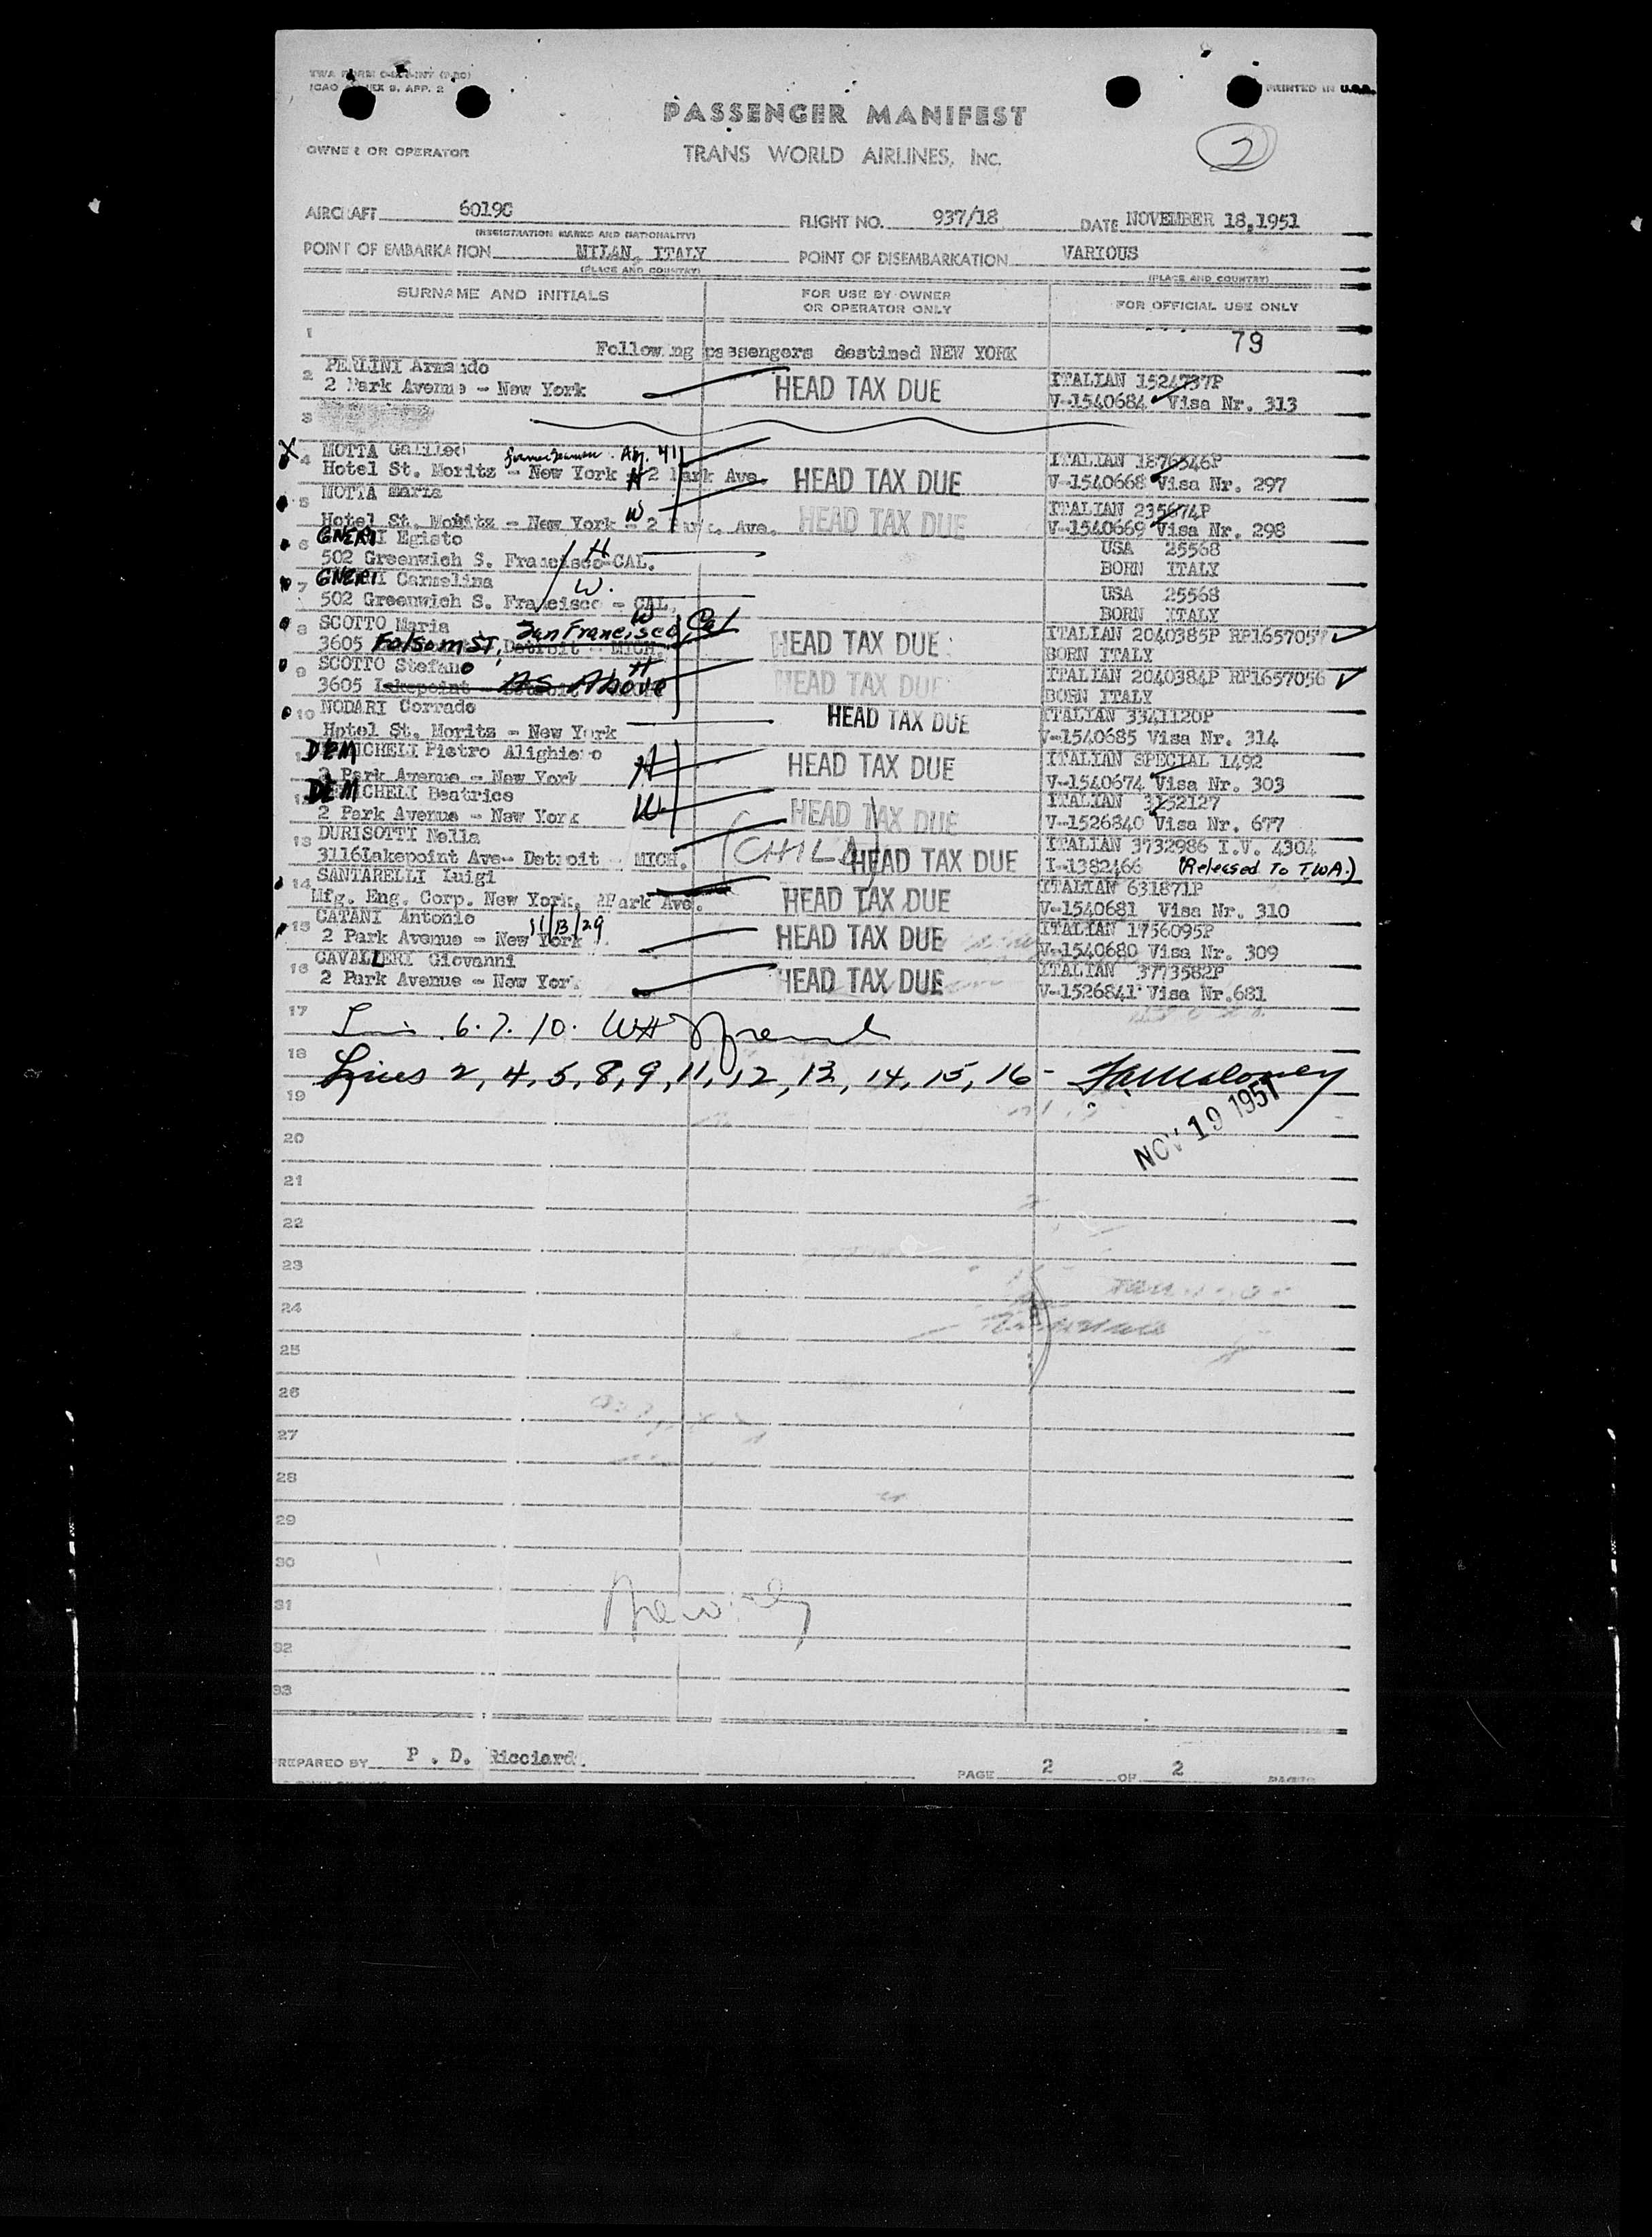 PASSENGER MANIFEST
OWNER OR OPERATOR TRANS WORLD AIRLINES, INC. 2
PRINTED IN U.S.A.
AIRCRAFT 6019C FLIGHT NO. 937/18 DATE NOVEMBER 18,1951
(REGISTRATION MARKS AND NATIONALITY)
POINT OF EMBARKATION MILAN, ITALY POINT OF DISEMBARKATION VARIOUS
(PLACE AND COUNTRY) (PLACE AND COUNTRY)
SURNAME AND INITIALS FOR USE BY OWNER OR OPERATOR ONLY FOR OFFICIAL USE ONLY
1 Following passengers destined NEW YORK 79
2 PERLINI Armando ITALIAN 1524737P
2 Park Avenue - New York HEAD TAX DUE V-1540684 Visa Nr. 313
3
X 4 MOTTA Galileo ITALIAN 1876546P
Hotel St. Moritz - New York H 2 Park Ave. HEAD TAX DUE V-1540668 Visa Nr. 297
5 MOTTA Maria ITALIAN 235674P
Hotel St. Moritz - New York W - 2 Park. Ave. HEAD TAX DUE V-1540669 Visa Nr. 298
6 GNERI Egisto H USA 25568
502 Greenwich S. Francisco-CAL. BORN ITALY
7 GNERI Carmelina W. USA 25568
502 Greenwich S. Francisco - CAL. BORN ITALY
8 SCOTTO Maria San Francisco, Cal W ITALIAN 2040385P RP1657057
3605 Folsom ST, Detroit - MICH. HEAD TAX DUE BORN ITALY
9 SCOTTO Stefano H ITALIAN 2040384P RP1657056
3605 Lakepoint - As Above HEAD TAX DUE BORN ITALY
10 NODARI Corrado HEAD TAX DUE ITALIAN 3341120P
Hotel St. Moritz - New York V-1540685 Visa Nr. 314
DEMICHELI Pietro Alighiero H HEAD TAX DUE ITALIAN SPECIAL 1492
2 Park Avenue - New York V-1540674 Visa Nr. 303
12 DEMICHELI Beatrice W HEAD TAX DUE ITALIAN 3152127
2 Park Avenue - New York V-1526840 Visa Nr. 677
13 DURISOTTI Nella (CHILD) ITALIAN 3732986 I.V. 4304
3116Lakepoint Ave- Detroit - MICH. HEAD TAX DUE I-1382466 (Released To T.W.A.)
14 SANTARELLI Luigi ITALIAN 631871P
Mfg. Eng. Corp. New York, 2Park Ave. HEAD TAX DUE V-1540681 Visa Nr. 310
15 CATANI Antonio 11/13/29 ITALIAN 1756095P
2 Park Avenue - New York HEAD TAX DUE V-1540680 Visa Nr. 309
16 CAVALLERI Giovanni ITALIAN 3773582P
2 Park Avenue - New York HEAD TAX DUE V-1526841 Visa Nr.681
17 6. 7. 10.
18 Lines 2, 4, 5, 8, 9, 11, 12, 13, 14, 15, 16-
19 NOV 19 1951
20
21
22
23
24
25
26
27
28
29
30
31
32
33
PREPARED BY P. D. Ricciardi. PAGE 2 OF 2 PAGES